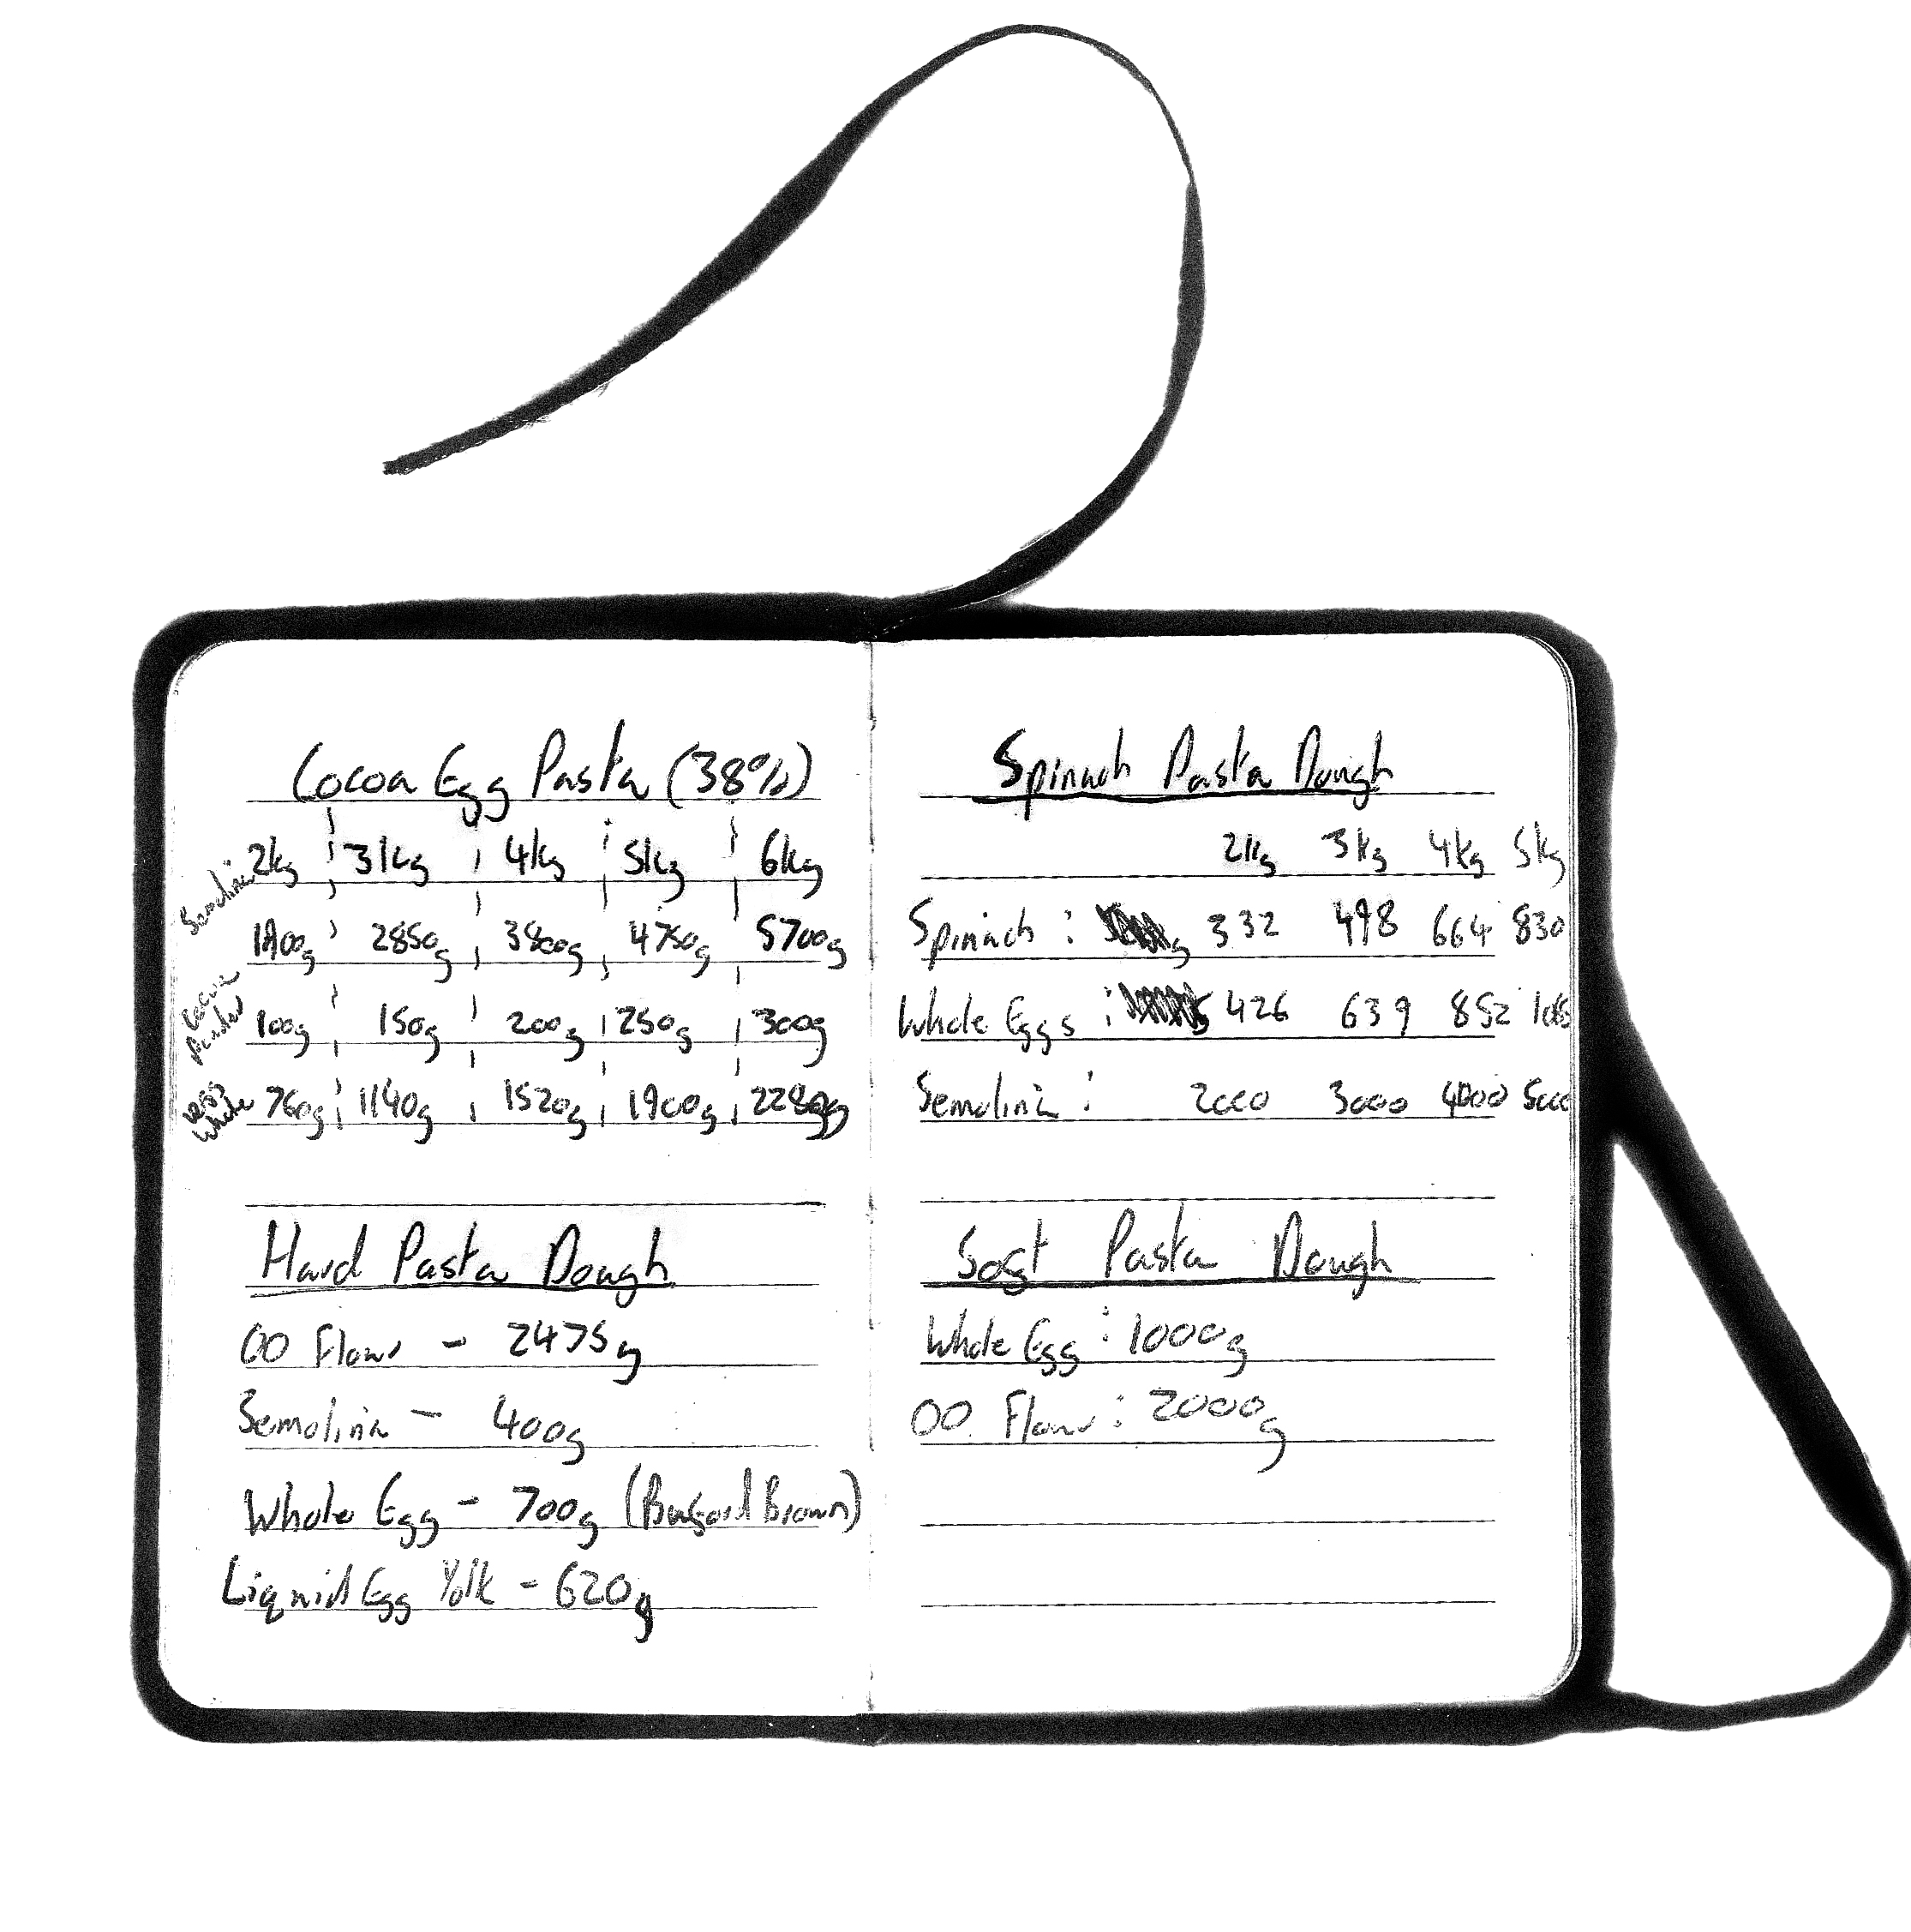 Cocoa Egg Pasta (38%)
2kg 3kg 4kg 5kg 6kg
Semolina 1900g 2850g 3800g 4750g 5700g
Cocoa Powder 100g 150g 200g 250g 300g
Egg White 760g 1140g 1520g 1900g 2280g
Hard Pasta Dough
00 Flour - 2475g
Semolina - 400g
Whole Egg - 700g (Burford Brown)
Liquid Egg Yolk - 620g
Spinach Pasta Dough
2kg 3kg 4kg 5kg
Spinach : g 332 498 664 830
Whole Eggs : 426 639 852 1065
Semolina : 2000 3000 4000 5000
Soft Pasta Dough
Whole Egg : 1000g
00 Flour : 2000g